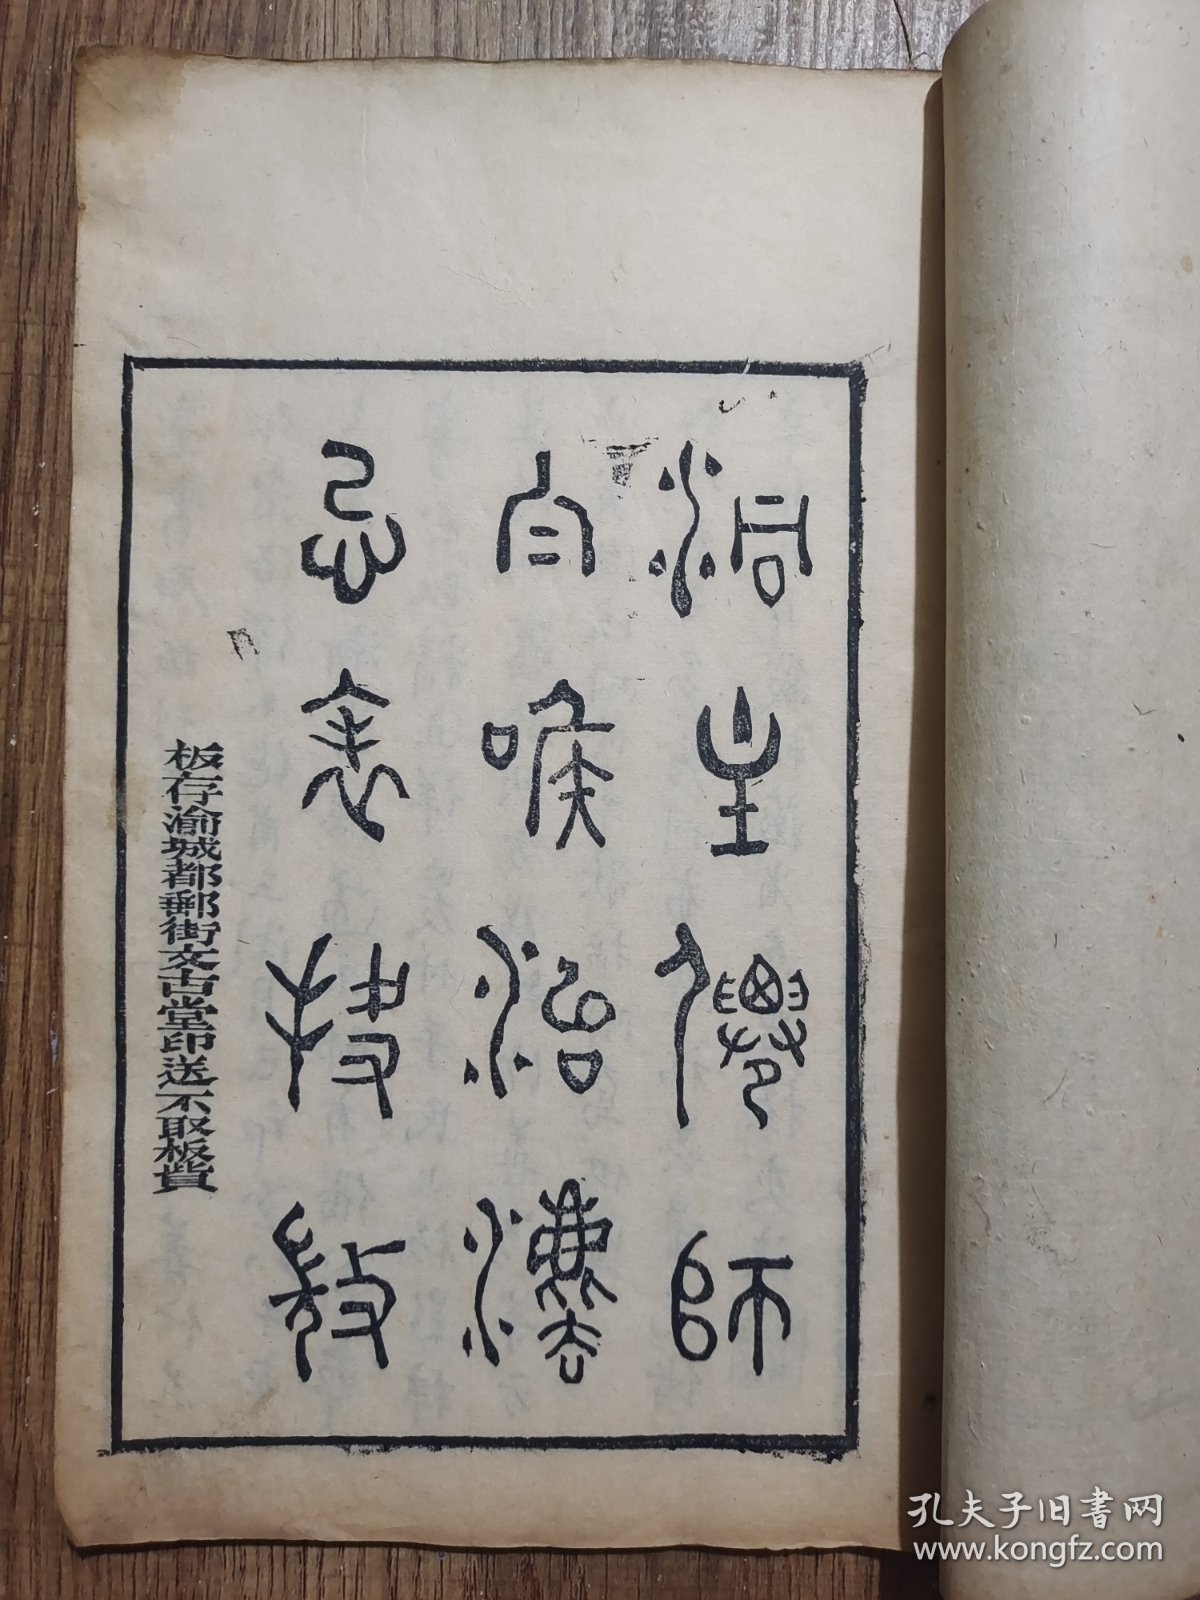 洞主僊師
白喉治灋
忌表抉𢼸
板存渝城都郵街文古堂印送不取板貲
孔夫子旧书网
www.kongfz.com